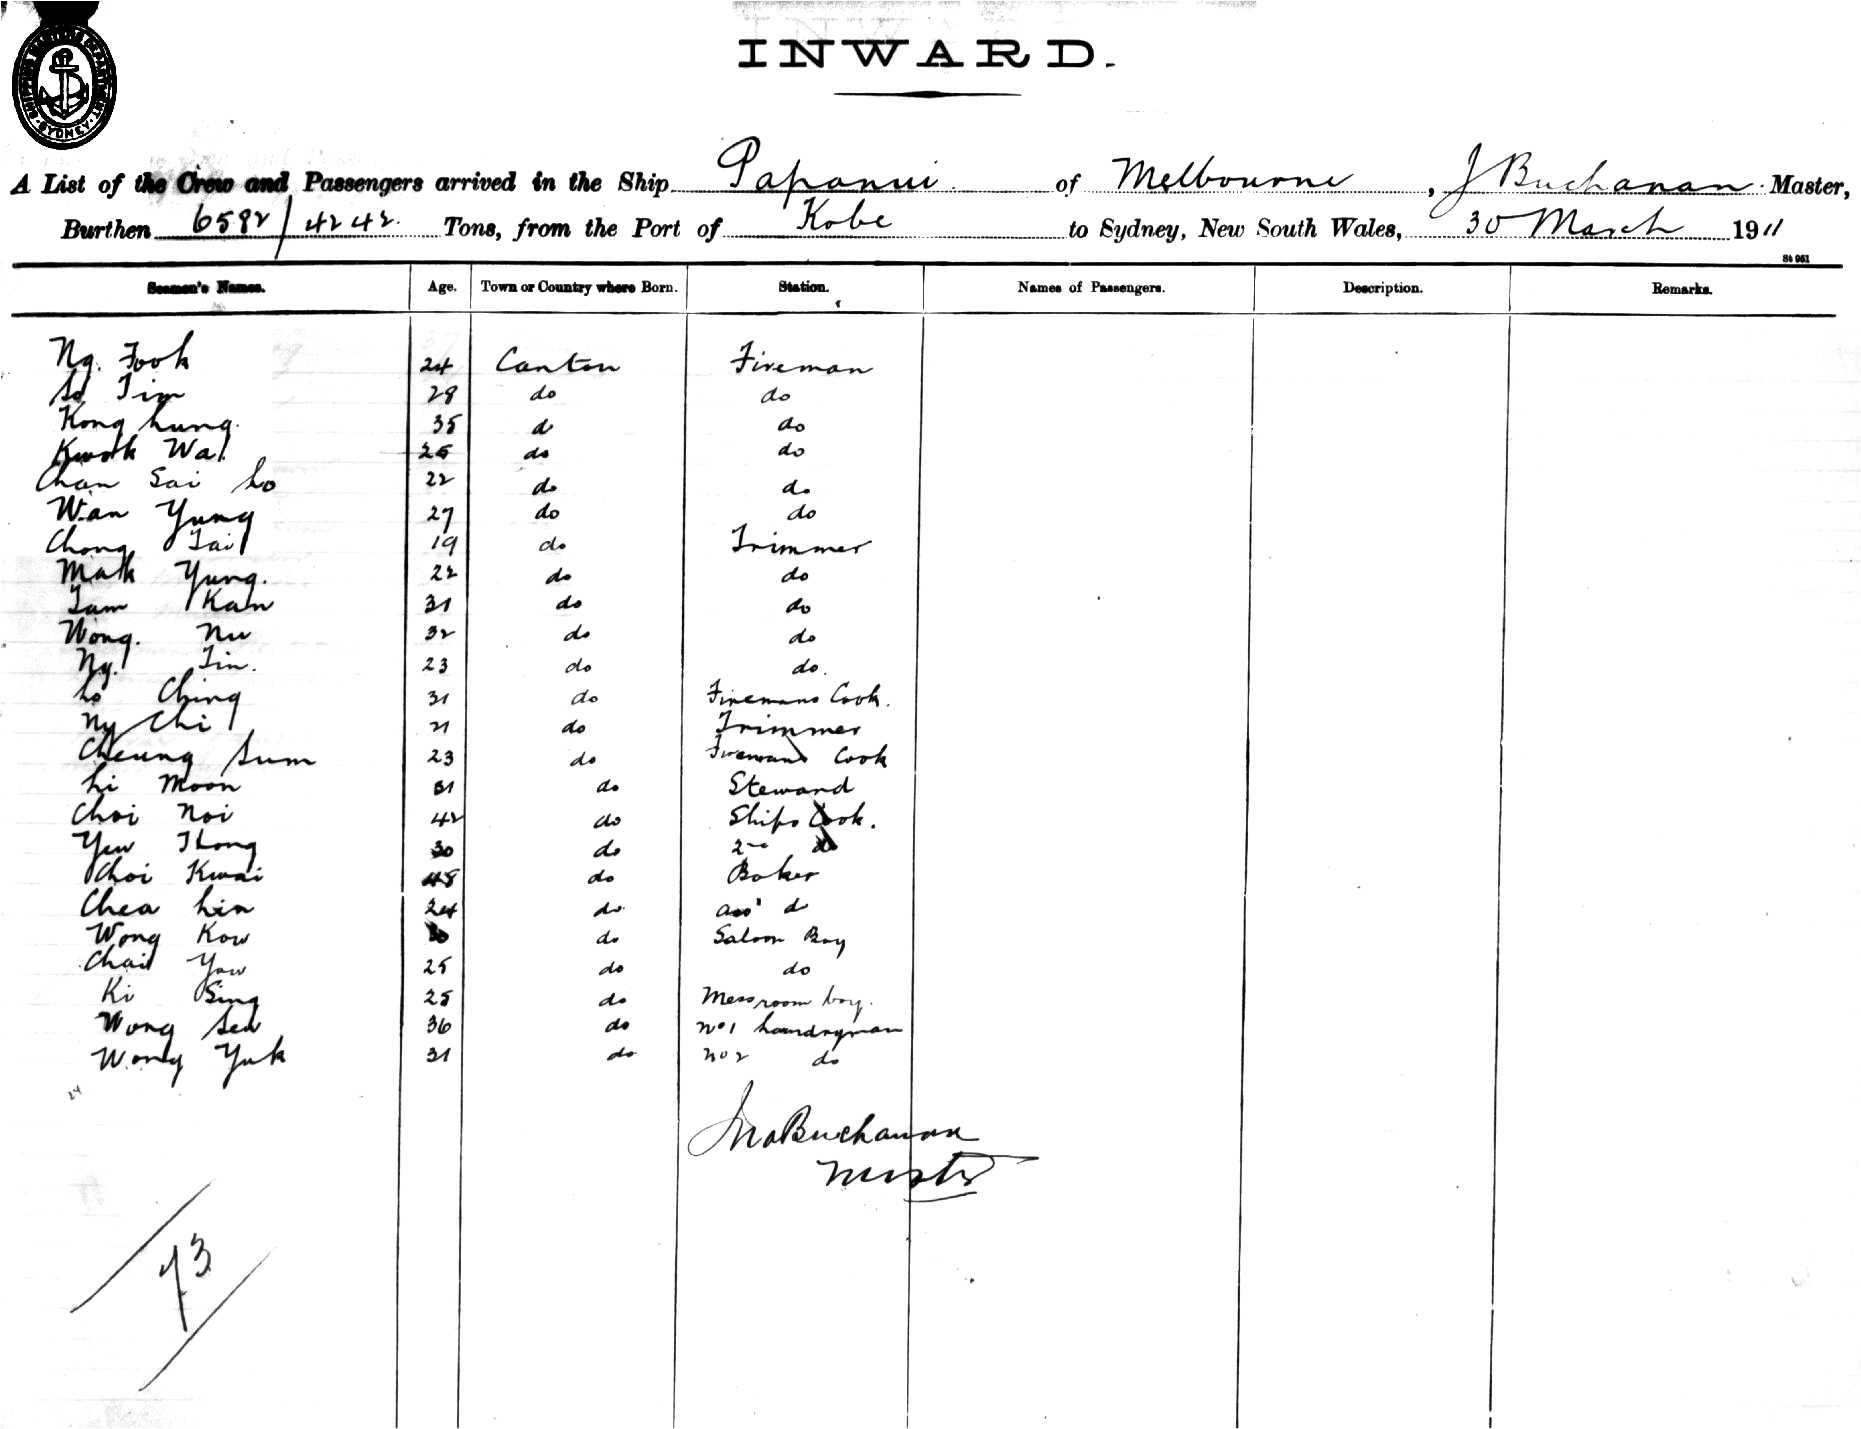 SHIPPING MASTERS DEPARTMENT SYDNEY
INWARD.
A List of the Crew and Passengers arrived in the Ship Papanui of Melbourne, J Buchanan Master,
Burthen 6582/4242 Tons, from the Port of Kobe to Sydney, New South Wales, 30 March 1911
St 961
Seamen's Names. Age. Town or Country where Born. Station. Names of Passengers. Description. Remarks.
Ng. Fook 24 Canton Fireman
So Tim 28 do do
Kong Lung. 35 do do
Kwok Wal 25 do do
Chan Sai Lo 22 do do
Wan Yung 27 do do
Chong Tai 19 do Trimmer
Mak Yung. 22 do do
Tam Kan 31 do do
Wong. Nu 32 do do
Ng. Tin. 23 do do.
Lo Ching 31 do Firemans Cook.
Ng Chi 21 do Trimmer
Cheung Sum 23 do Firemans Cook
Li Moon 31 do Steward
Choi Noi 42 do Ships Cook.
Yew Thong 30 do 2nd do
Choi Kwai 48 do Baker
Chea Lin 24 do ass't do
Wong Kow 30 do Saloon Boy
Chai Yow 25 do do
Ki Sing 25 do Messroom boy.
Wong See 36 do No 1 Laundryman
Wong Yuk 31 do No 2 do
24
Jno Buchanan
Master
73